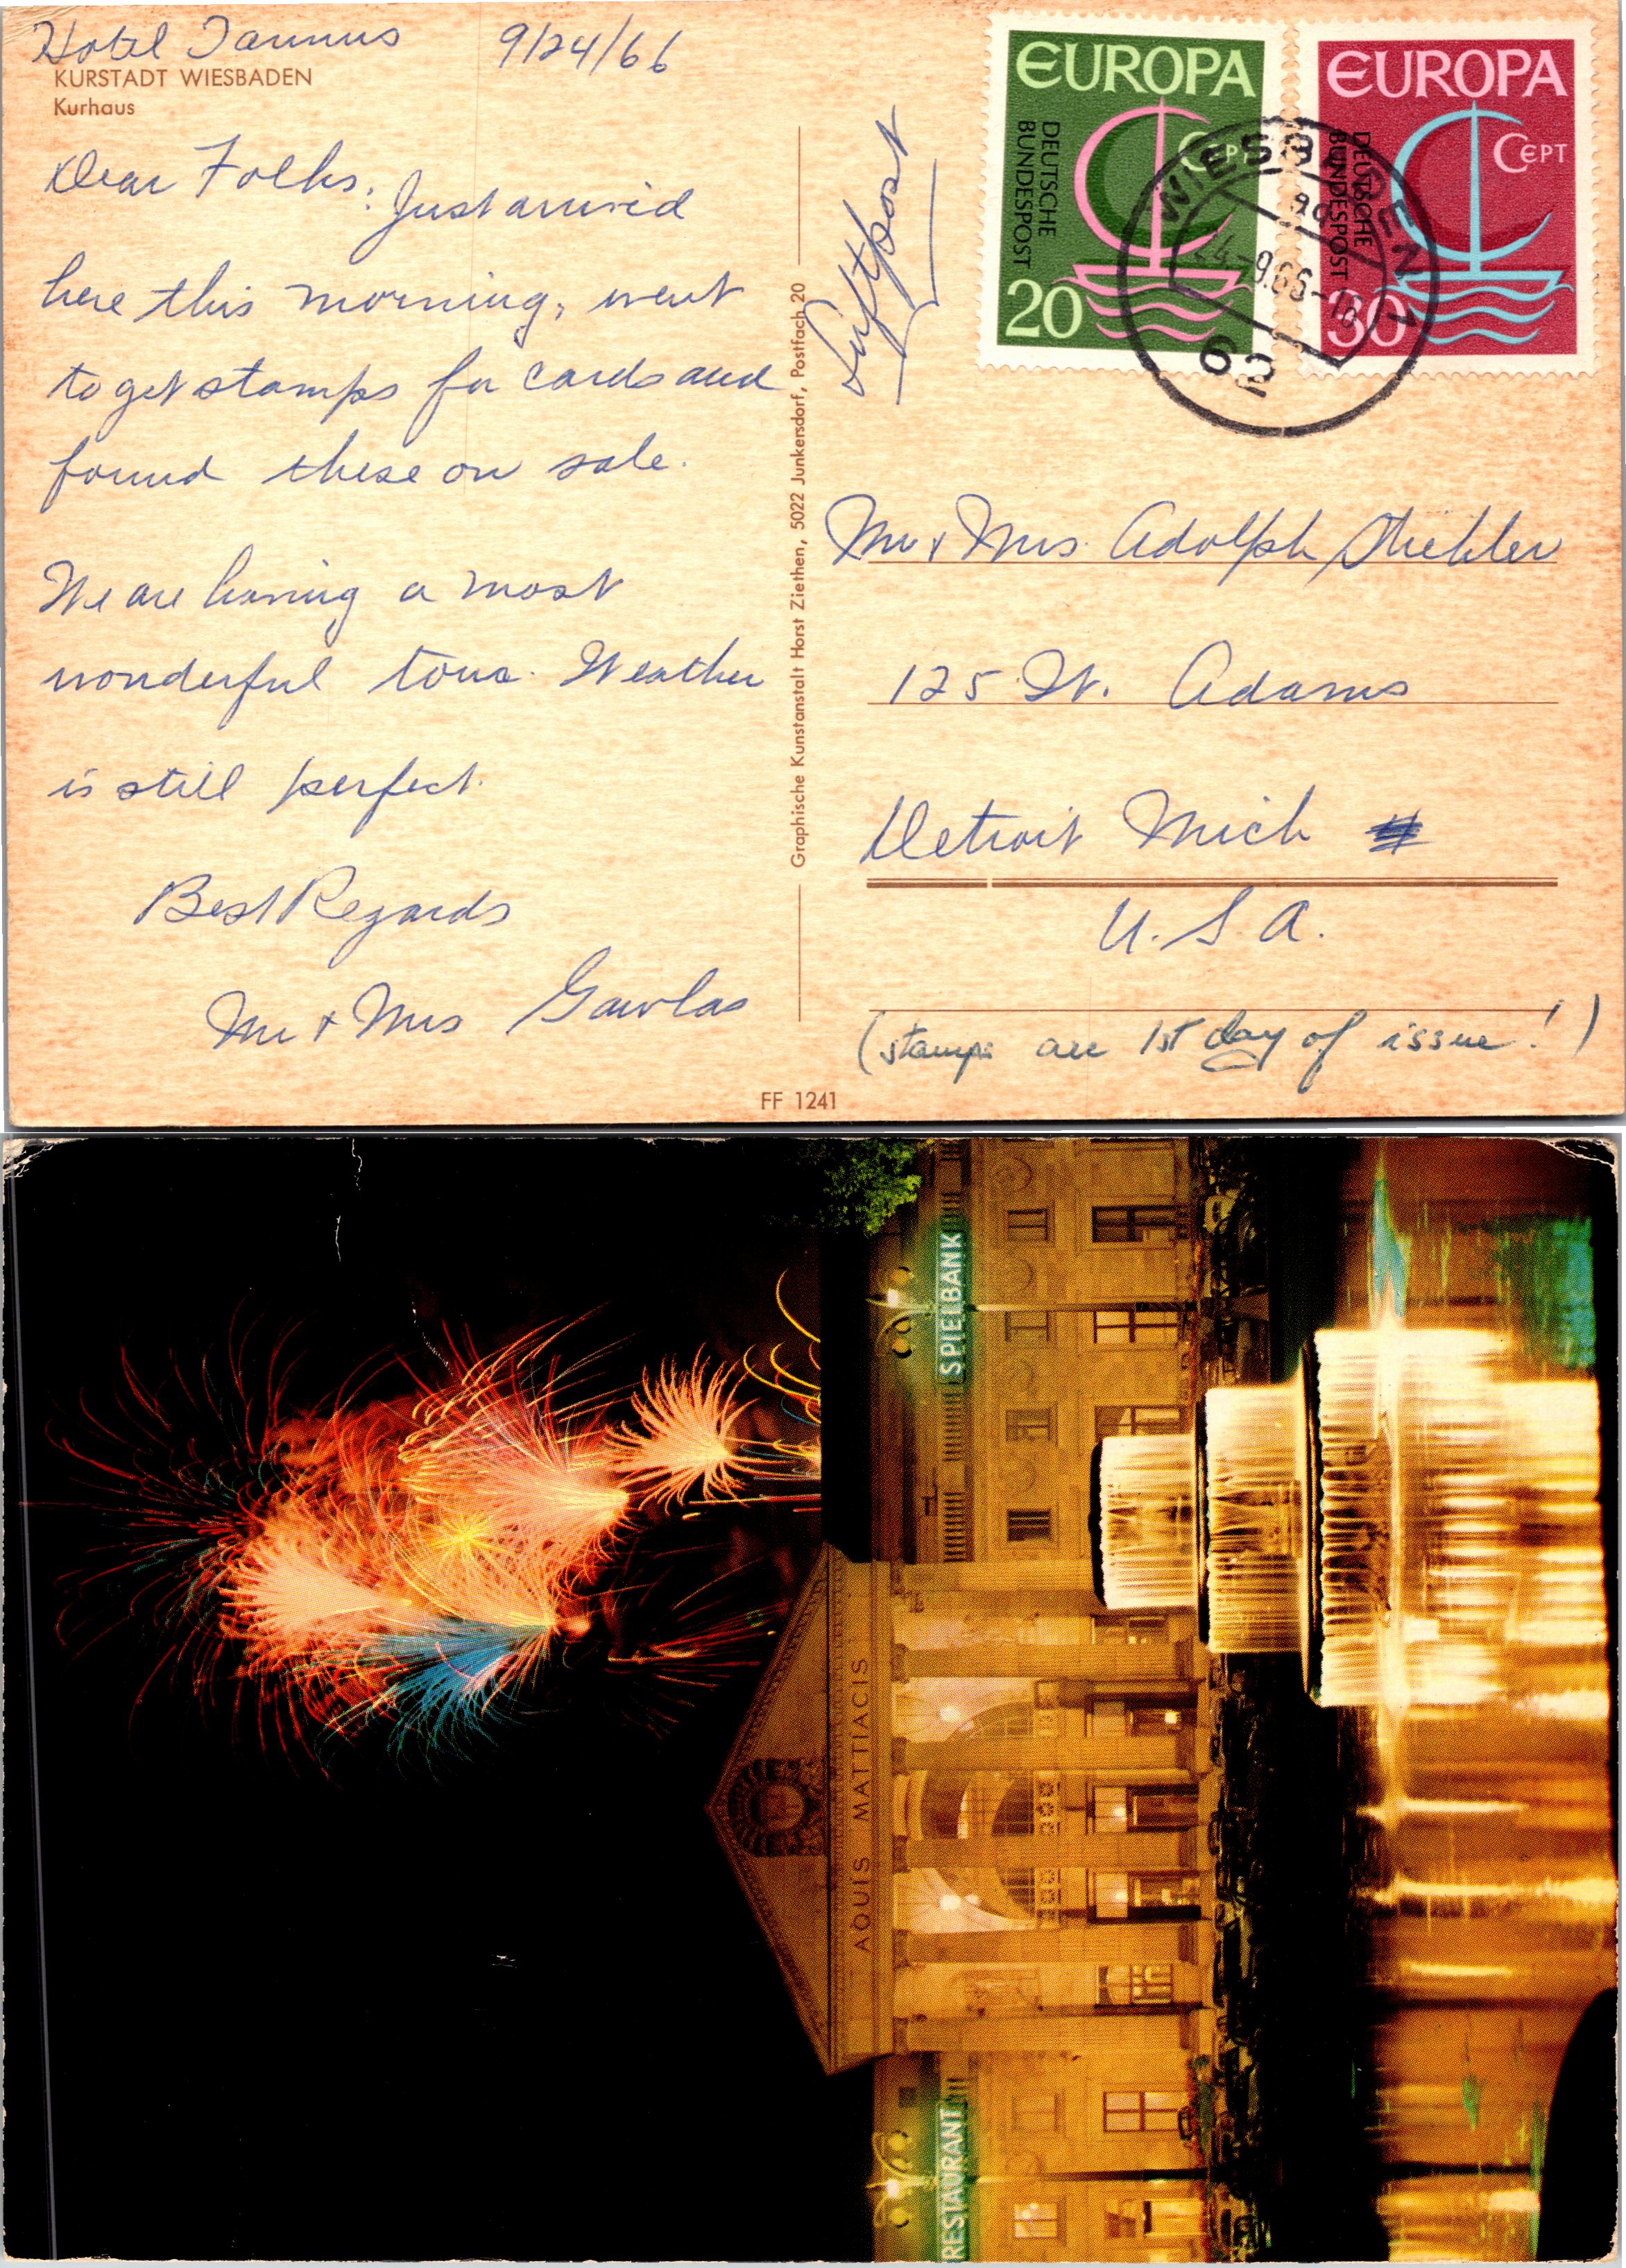 Hotel Taunus 9/24/66
KURSTADT WIESBADEN
Kurhaus
Dear Folks: Just arrived
here this morning, went
to get stamps for cards and
found these on sale.
We are having a most
wonderful tour. Weather
is still perfect.
Best Regards
Mr + Mrs Gawlas
Graphische Kunstanstalt Horst Ziethen, 5022 Junkersdorf, Postfach 20
Luftpost
EUROPA
CEPT
DEUTSCHE
BUNDESPOST
20
EUROPA
CEPT
DEUTSCHE
BUNDESPOST
30
WIESBADEN 1
24.-9.66-18
62
Mr + Mrs. Adolph
125 W. Adams
Detroit Mich
U.S.A.
(stamps are 1st day of issue!)
FF 1241
SPIELBANK
AQUIS MATTIACIS
RESTAURANT